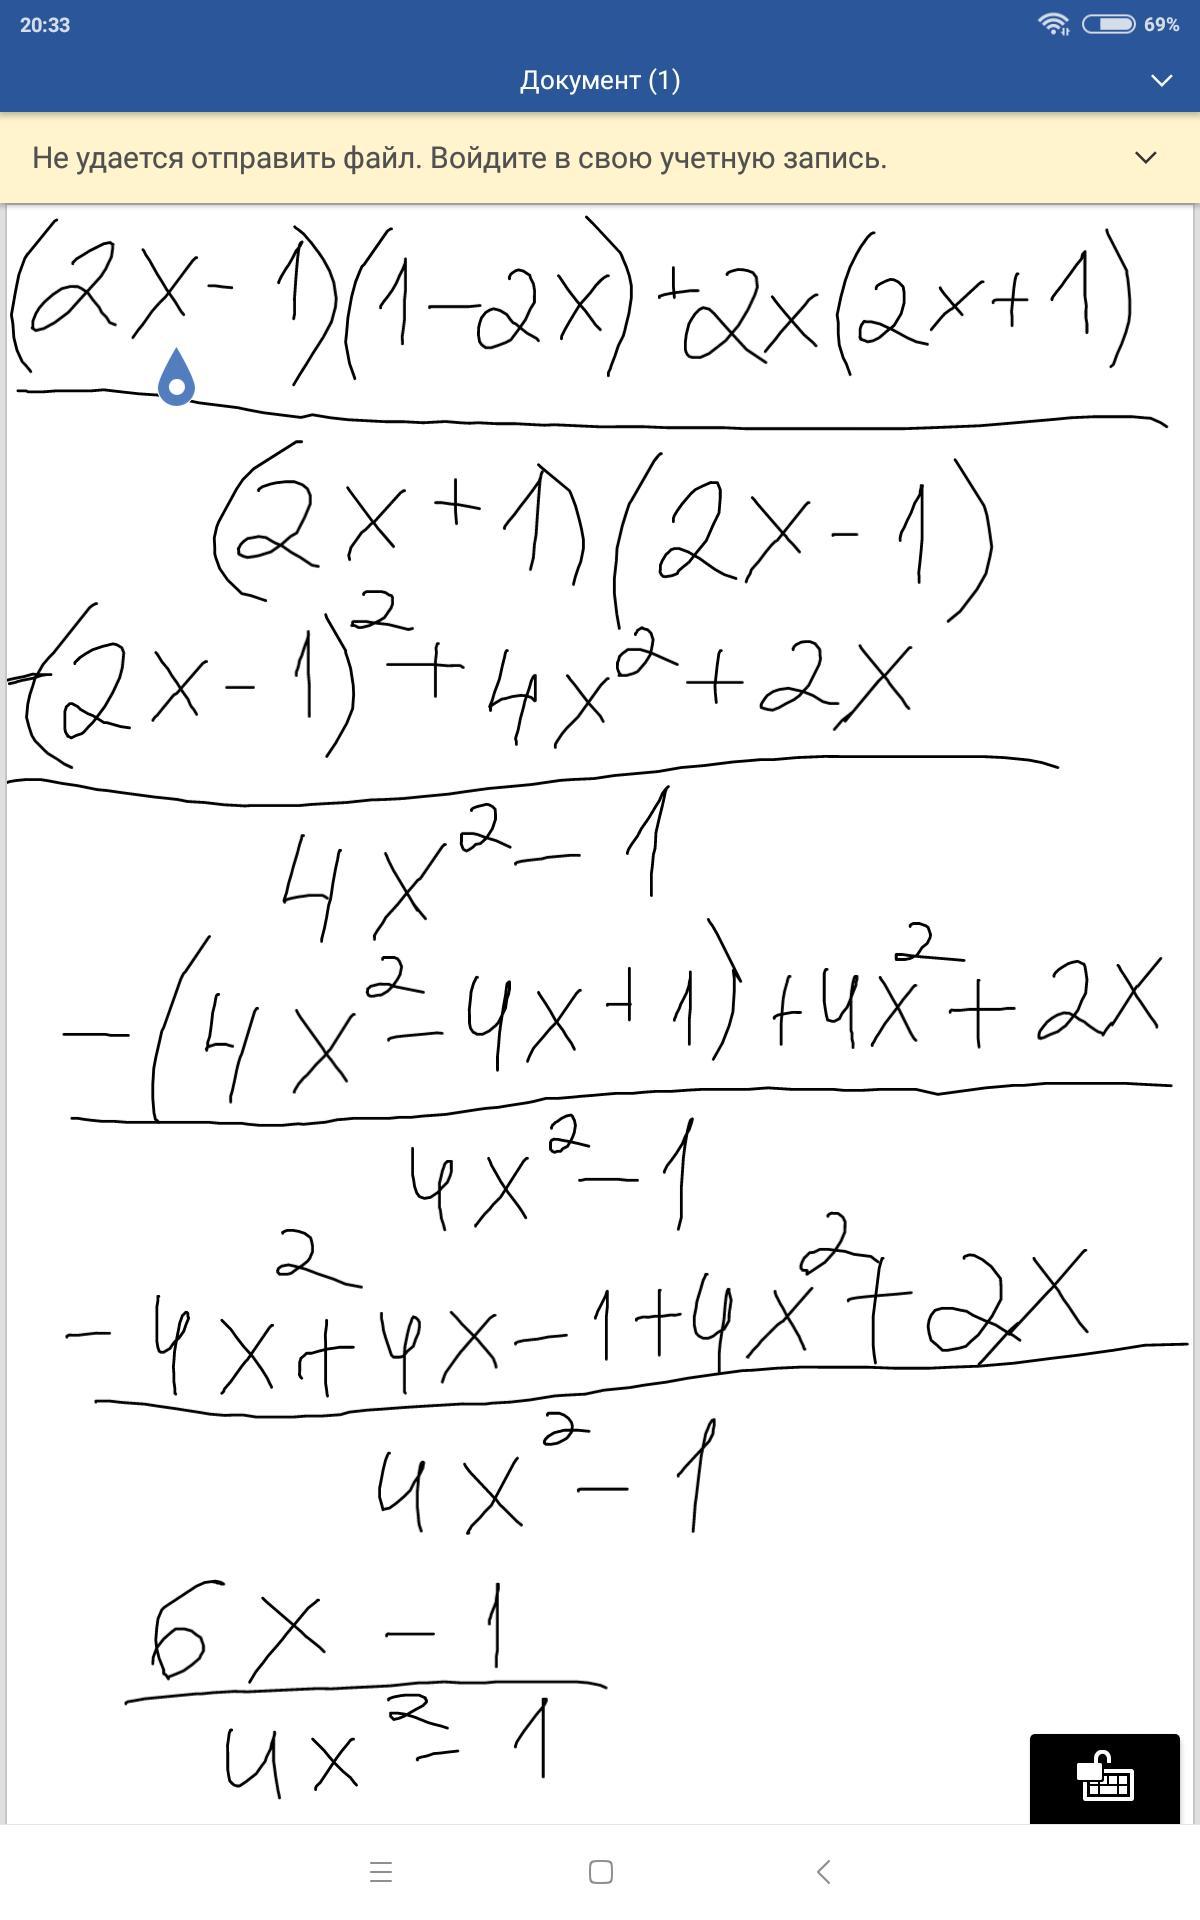 20:33 69%
Документ (1)
Не удается отправить файл. Войдите в свою учетную запись.
(2x-1)(1-2x)+2x(2x+1)
(2x+1)(2x-1)
-(2x-1)²+4x²+2x
4x²-1
-(4x²-4x+1)+4x²+2x
4x²-1
-4x²+4x-1+4x²+2x
4x²-1
6x-1
4x²-1